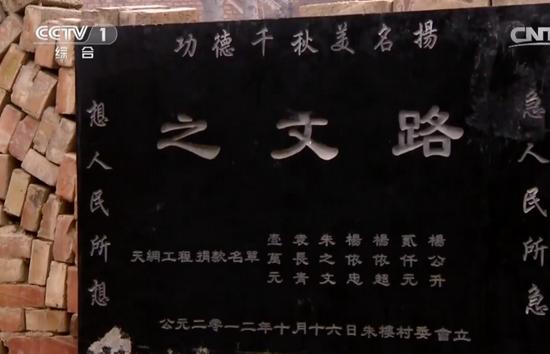 CCTV 1
综合
CNT
功德千秋美名揚
急人民所急
想人民所想
之文路
天網工程捐款名單
壹萬元
袁長青
朱之文
楊依忠
楊依超
貳仟元
楊公升
公元二零一二年十月十六日朱樓村委會立